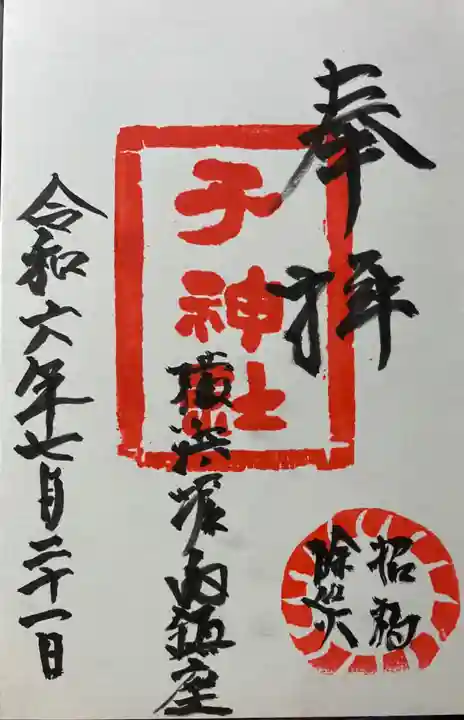 奉拝
子神社
横浜堀内鎮座
令和六年七月二十一日
招福
除災